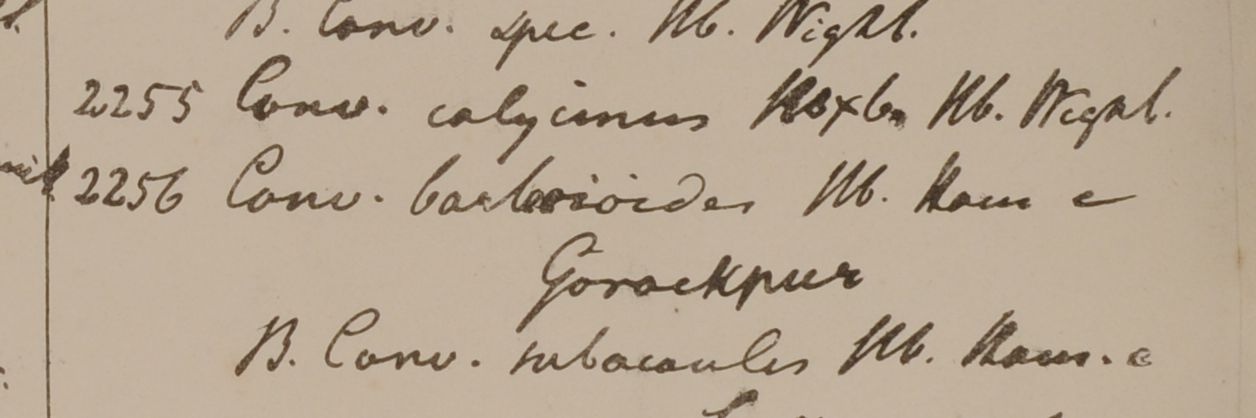 B. Conv. spec. Hb. Wight.
2255 Conv. calycinus Roxb. Hb. Wight.
2256 Conv. barlerioides Hb. Ham e
Gorackpur
B. Conv. subacaulis Hb. Ham. e